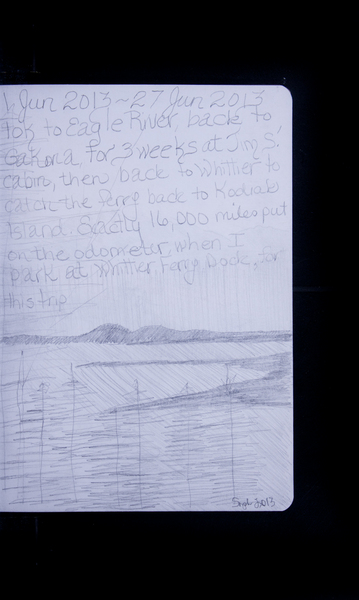 1 Jun 2013 ~ 27 Jun 2013
Tok to Eagle River, back to
Gakona, for 3 weeks at Jim S.'
cabin, then back to Whittier to
catch the ferry back to Kodiak
Island. Exactly 16,000 miles put
on the odometer, when I
park at Whittier Ferry Dock, for
this trip
2013